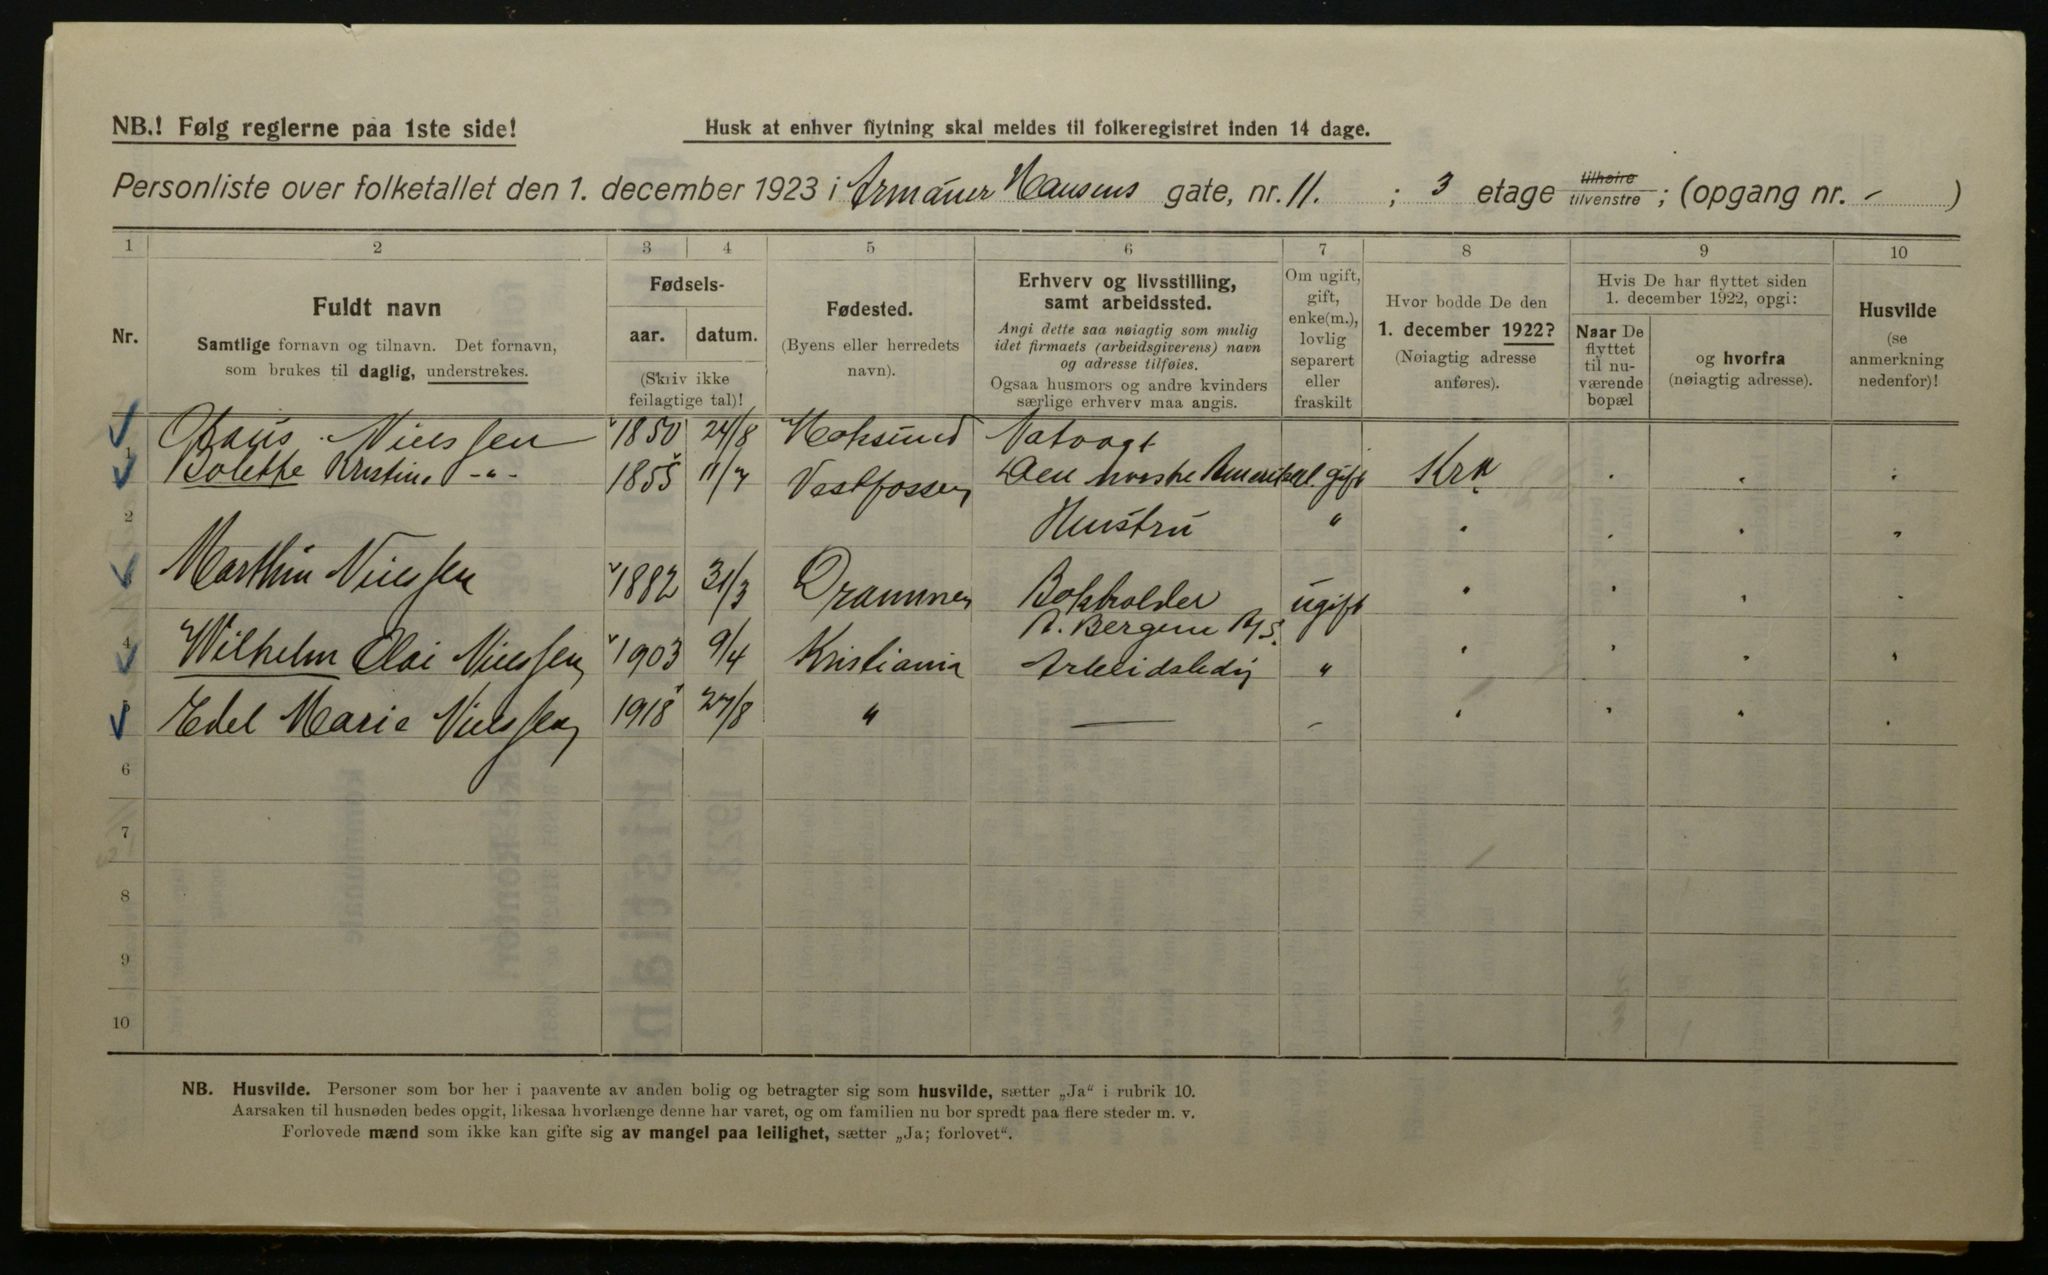 NB.! Følg reglerne paa 1ste side!
Husk at enhver flytning skal meldes til folkeregistret inden 14 dage.
Personliste over folketallet den 1. december 1923 i Armauer Hansens gate, nr. 11. ; 3 etage tilhøire tilvenstre ; (opgang nr. - )
1 2 3 4 5 6 7 8 9 10
Nr.
Fuldt navn
Samtlige fornavn og tilnavn. Det fornavn,
som brukes til daglig, understrekes.
Fødsels-
aar. datum.
(Skriv ikke
feilagtige tal)!
Fødested.
(Byens eller herredets
navn).
Erhverv og livsstilling,
samt arbeidssted.
Angi dette saa nøiagtig som mulig
idet firmaets (arbeidsgiverens) navn
og adresse tilføies.
Ogsaa husmors og andre kvinders
særlige erhverv maa angis.
Om ugift,
gift,
enke(m.),
lovlig
separert
eller
fraskilt
Hvor bodde De den
1. december 1922?
(Nøiagtig adresse
anføres).
Hvis De har flyttet siden
1. december 1922, opgi:
Naar De
flyttet
til nu-
værende
bopæl
og hvorfra
(nøiagtig adresse).
Husvilde
(se
anmerkning
nedenfor)!
1 Nielssen 1850 24/8 Hoksund Natvagt
Bolette Kristine -"- 1855 11/7 Vestfossen Den norske Amerikal. gift Krа
2 Hustru "
3 Marthin Nielssen 1882 31/3 Drammen Bokholder ugift
B. Bergene A/S.
4 Wilhelm Olai Nielssen 1903 9/4 Kristiania Arbeidsledig "
5 Edel Marie Nielssen 1918 27/8 " — -
6
7
8
9
10
NB. Husvilde. Personer som bor her i paavente av anden bolig og betragter sig som husvilde, sætter „Ja“ i rubrik 10.
Aarsaken til husnøden bedes opgit, likesaa hvorlænge denne har varet, og om familien nu bor spredt paa flere steder m. v.
Forlovede mænd som ikke kan gifte sig av mangel paa leilighet, sætter „Ja; forlovet“.